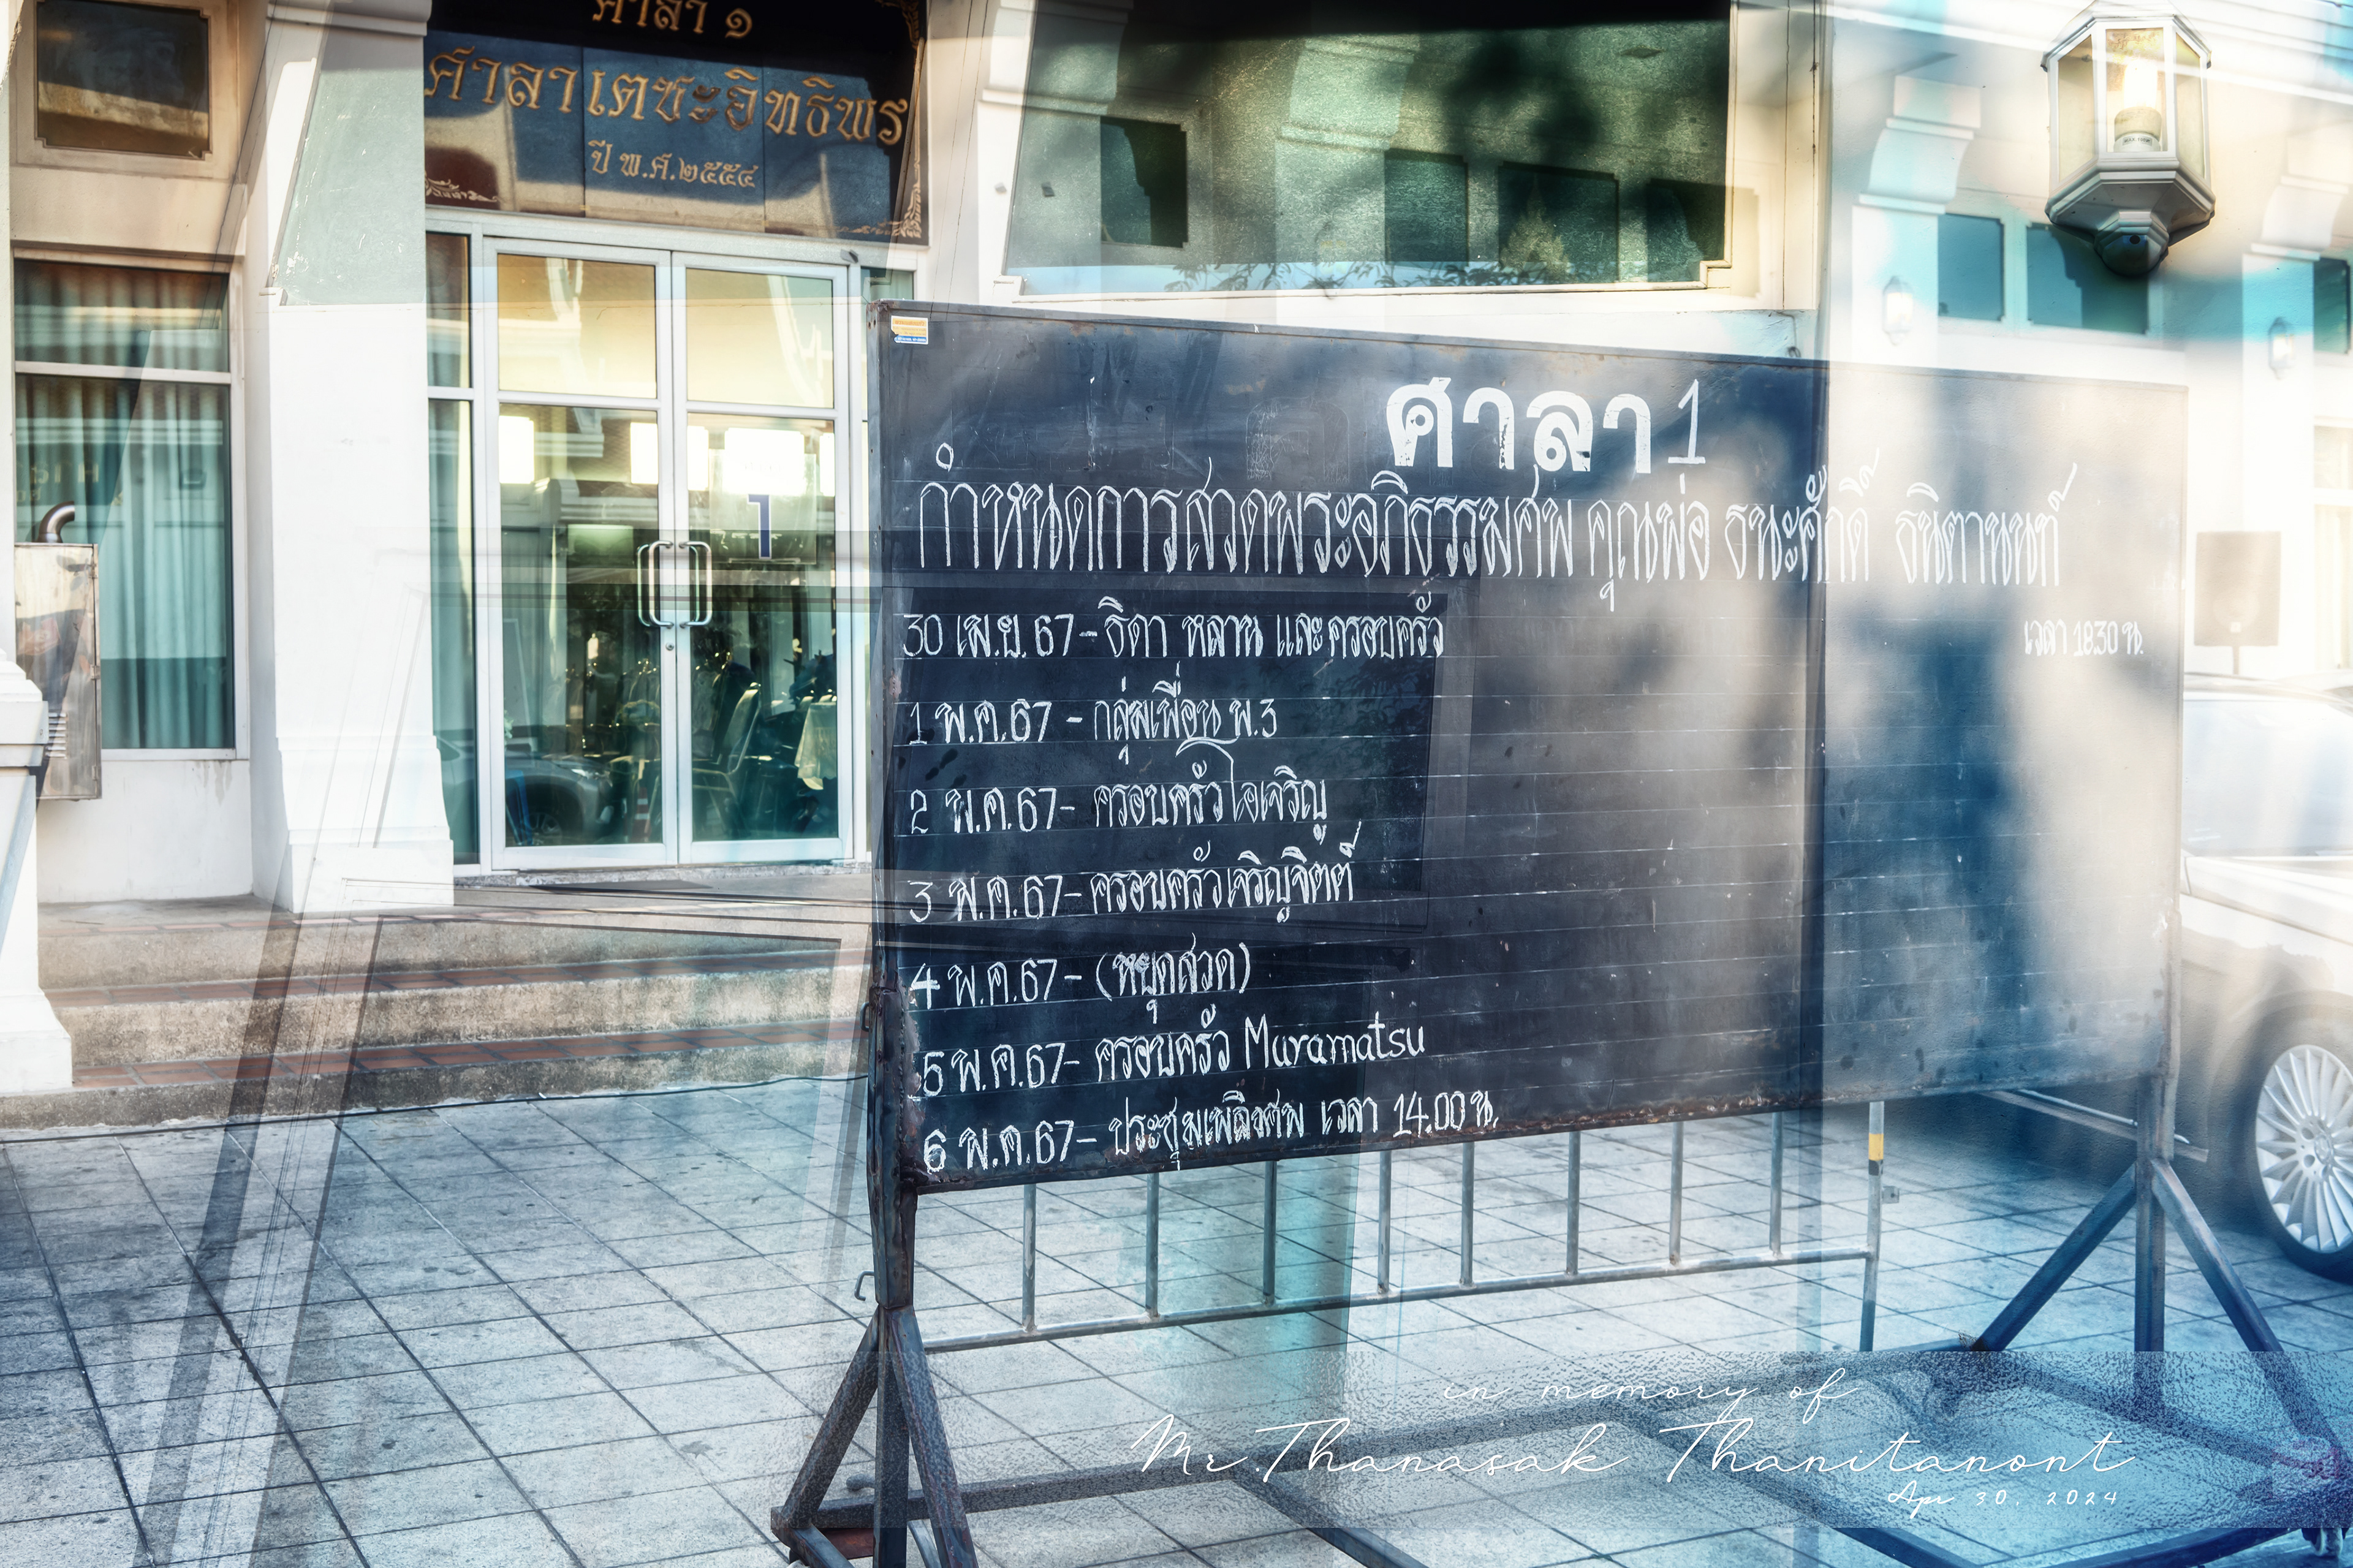 ศาลา ๑
ศาลาเตชะอิทธิพร
ปี พ.ศ.๒๕๕๔
1
ศาลา 1
กำหนดการสวดพระอภิธรรมศพ คุณพ่อ ธนะศักดิ์ ธนิตานนท์
เวลา 18.30 น.
30 เม.ย. 67 - ธิดา หลาน และครอบครัว
1 พ.ค. 67 - กลุ่มเพื่อน พ.3
2 พ.ค. 67 - ครอบครัวโอเจริญ
3 พ.ค. 67 - ครอบครัวเจริญจิตต์
4 พ.ค. 67 - (หยุดสวด)
5 พ.ค. 67 - ครอบครัว Muramatsu
6 พ.ค. 67 - ประชุมเพลิงศพ เวลา 14.00 น.
in memory of
Mr.Thanasak Thanitanont
Apr 30, 2024